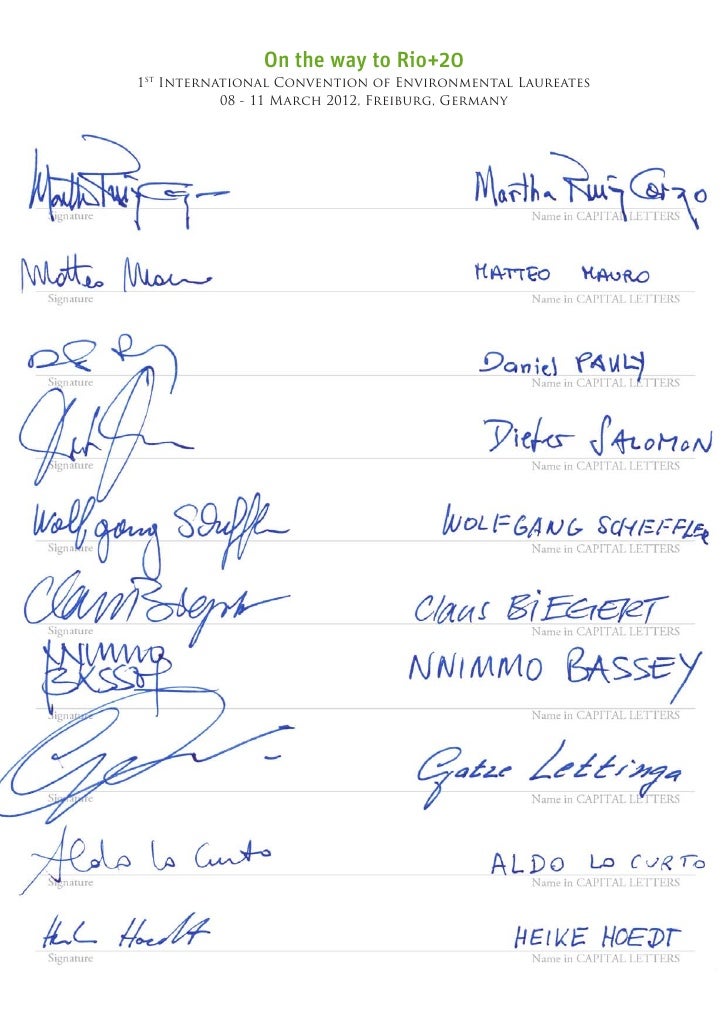 On the way to Rio+20
1ST INTERNATIONAL CONVENTION OF ENVIRONMENTAL LAUREATES
08 - 11 MARCH 2012, FREIBURG, GERMANY
Martha Ruiz Corzo
Signature Name in CAPITAL LETTERS
Matteo Mauro MATTEO MAURO
Signature Name in CAPITAL LETTERS
Daniel PAULY
Signature Name in CAPITAL LETTERS
Dieter SALOMON
Signature Name in CAPITAL LETTERS
Wolfgang Scheffler WOLFGANG SCHEFFLER
Signature Name in CAPITAL LETTERS
Claus Biegert Claus BIEGERT
Signature Name in CAPITAL LETTERS
NNIMMO NNIMMO BASSEY
BASSEY
Signature Name in CAPITAL LETTERS
Gatze Lettinga
Signature Name in CAPITAL LETTERS
Aldo Lo Curto ALDO LO CURTO
Signature Name in CAPITAL LETTERS
Hoedt HEIKE HOEDT
Signature Name in CAPITAL LETTERS